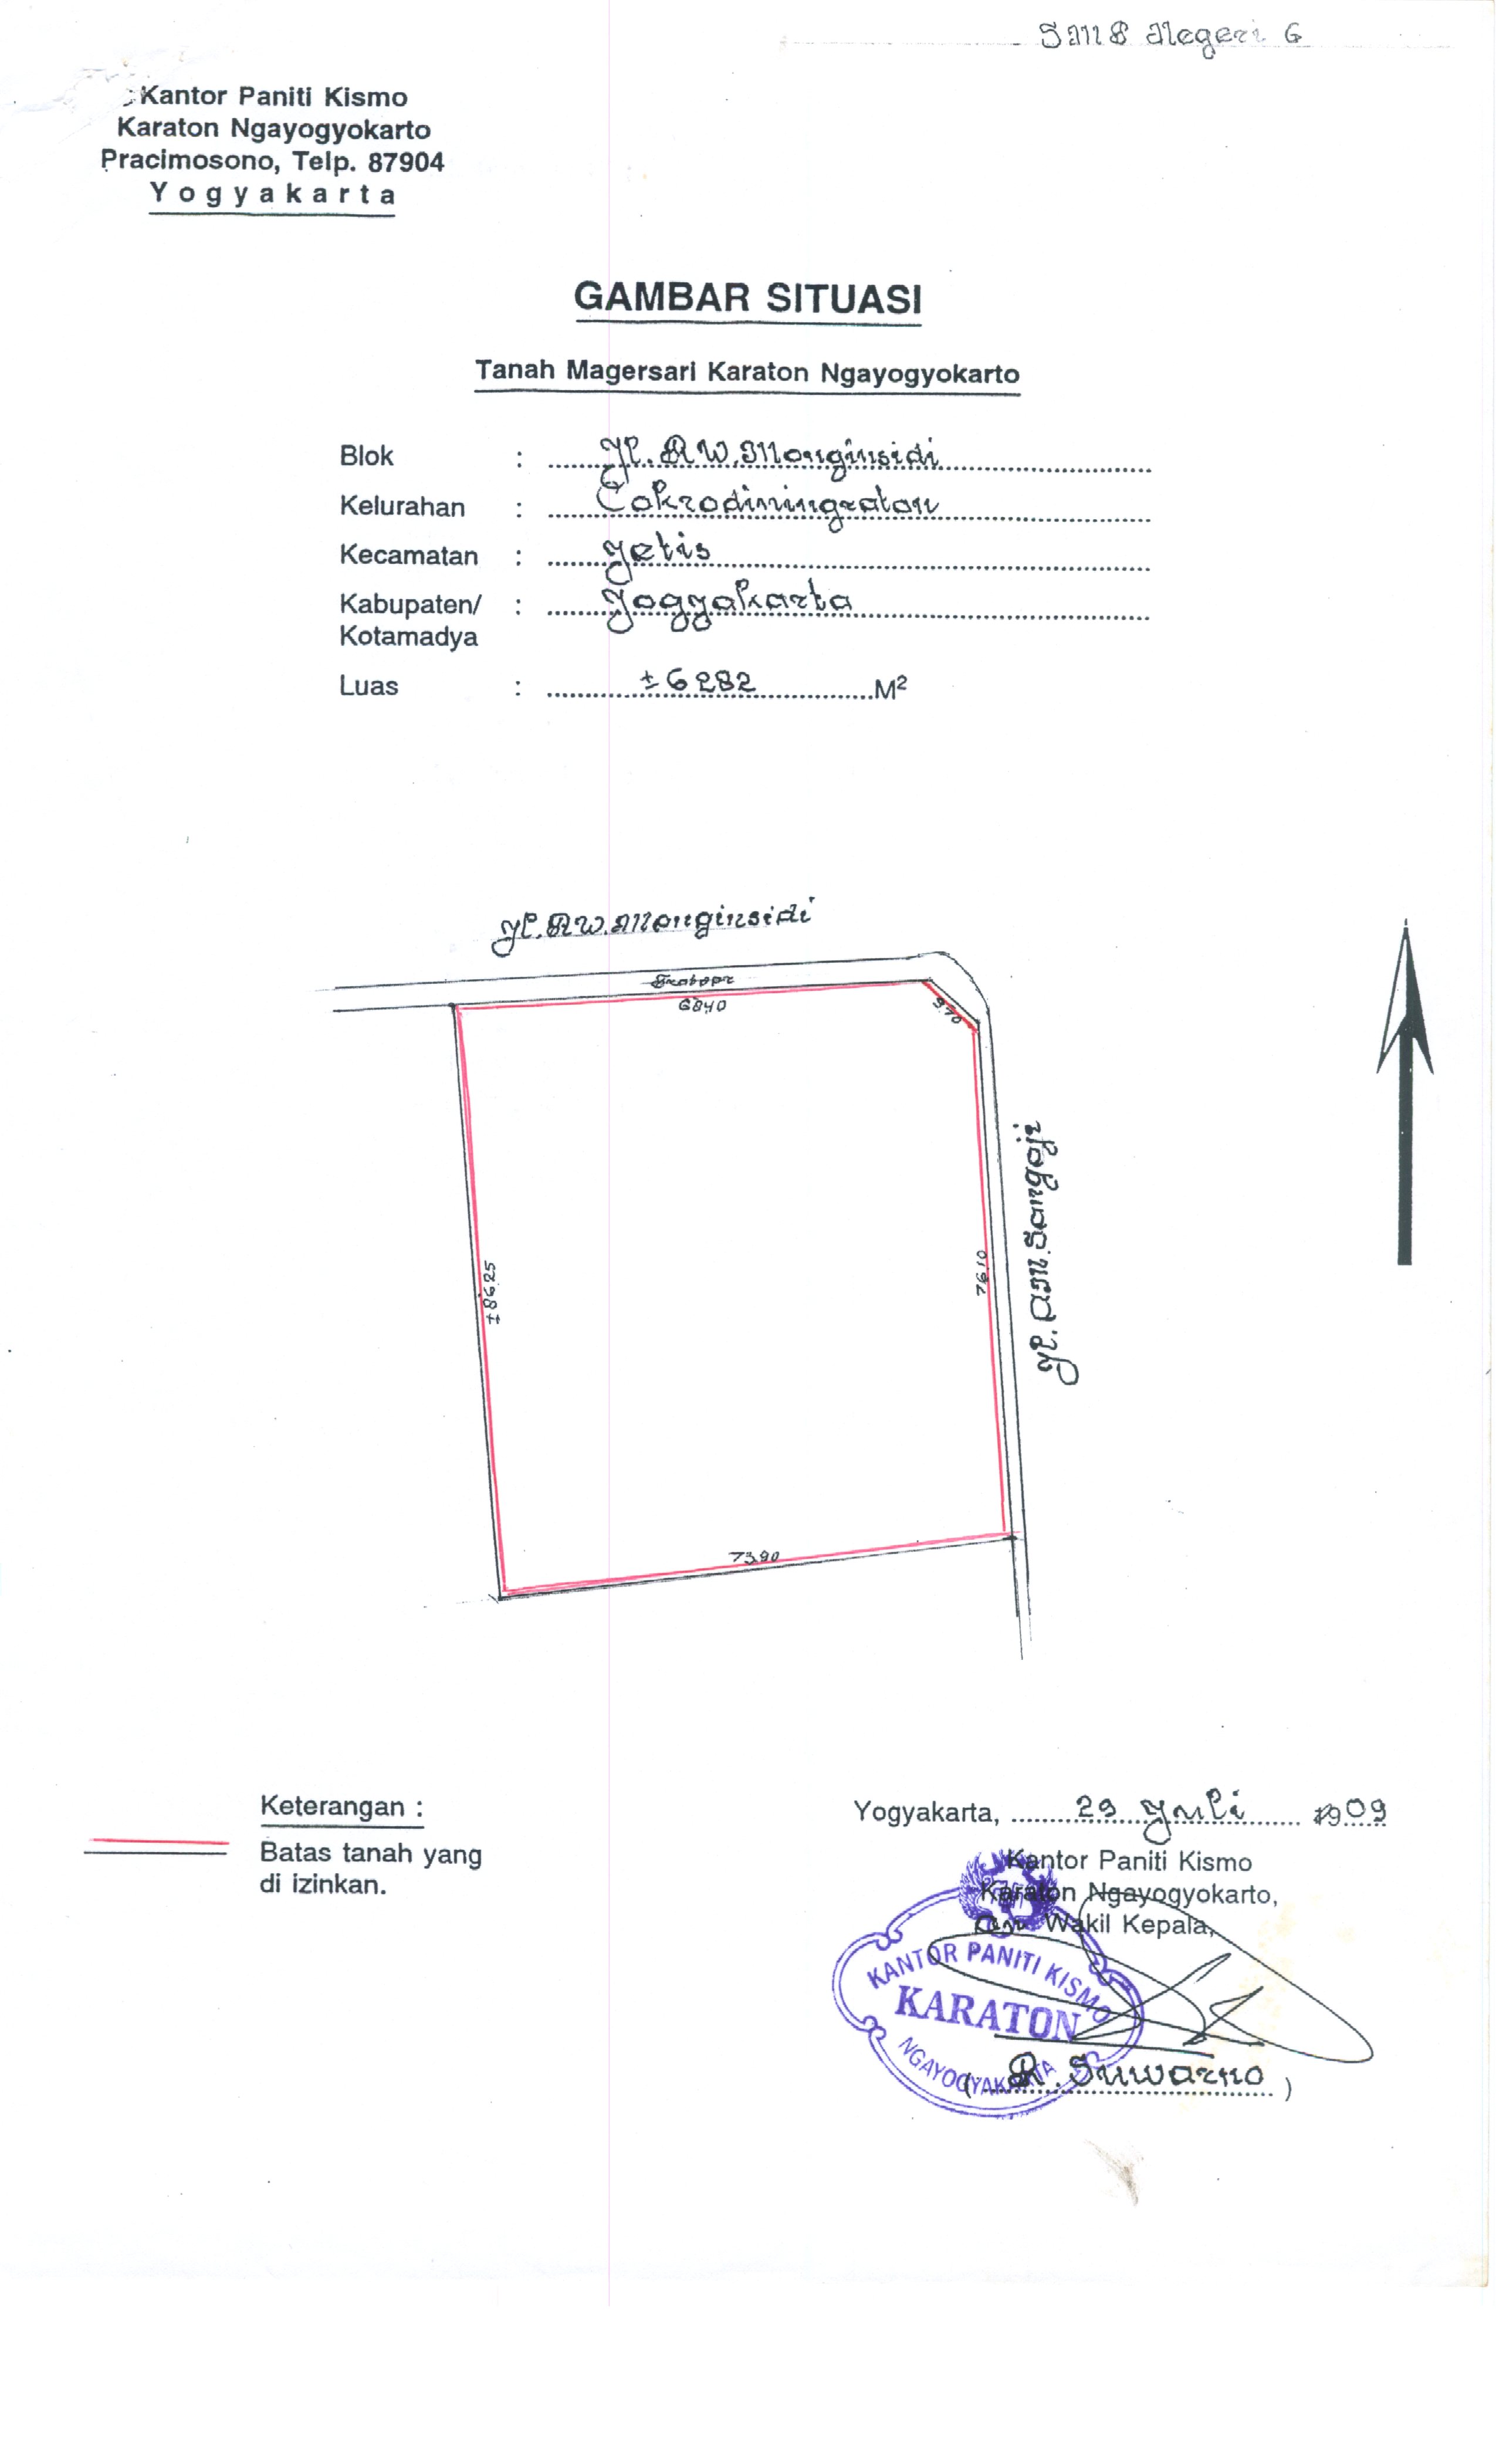 SMP Negeri 6
Kantor Paniti Kismo
Karaton Ngayogyokarto
Pracimosono, Telp. 87904
Yogyakarta
GAMBAR SITUASI
Tanah Magersari Karaton Ngayogyokarto
Blok : Jl. RW. Monginsidi
Kelurahan : Cokrodiningratan
Kecamatan : Jetis
Kabupaten/ : Yogyakarta
Kotamadya
Luas : ±6282 M²
Jl. RW. Monginsidi
Trotoar
6840
9.70
±8625
7610
7390
Keterangan :
Batas tanah yang
di izinkan.
Yogyakarta, 29 Juli 1909
Kantor Paniti Kismo
Karaton Ngayogyokarto,
Wakil Kepala,
KANTOR PANITI KISMO
KARATON
NGAYOGYAKARTA
( R. Suwarno )